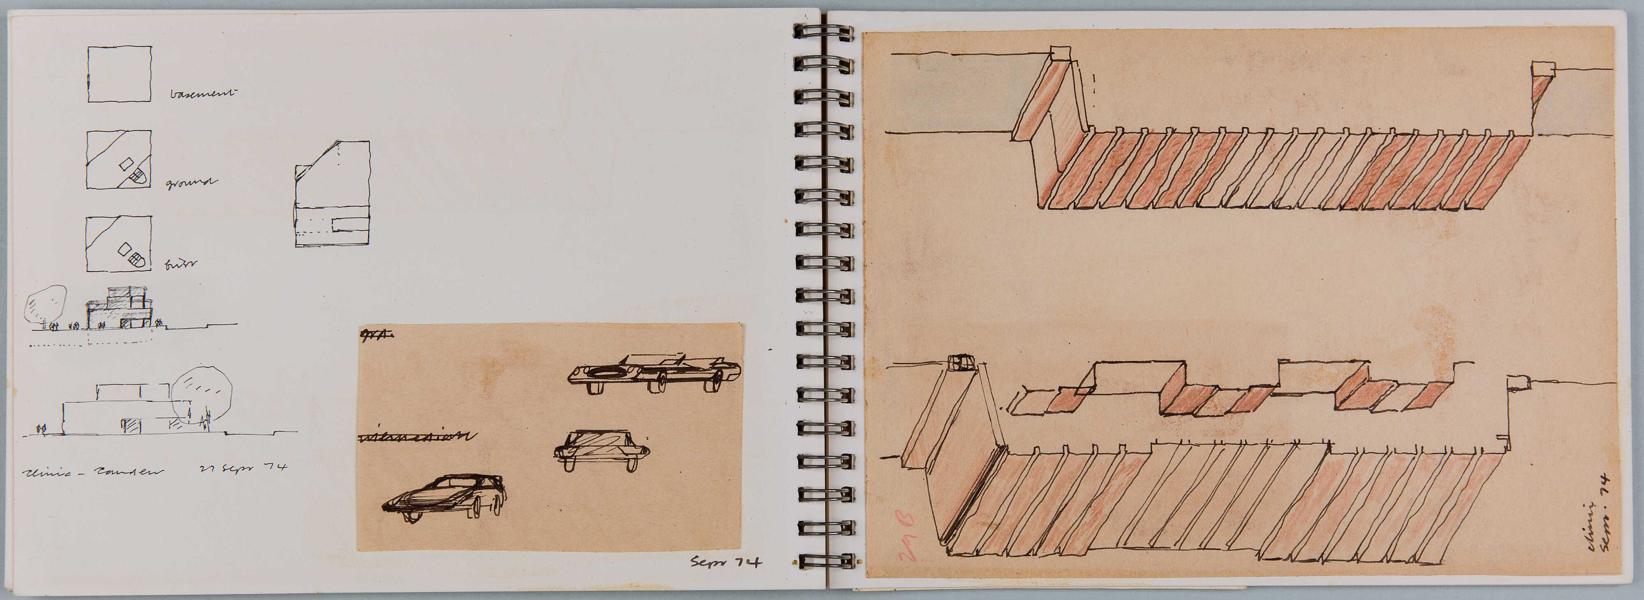 basement
ground
first
clinic - Camden 27 Sept 74
Sept 74
29B
clinic
Sept. 74